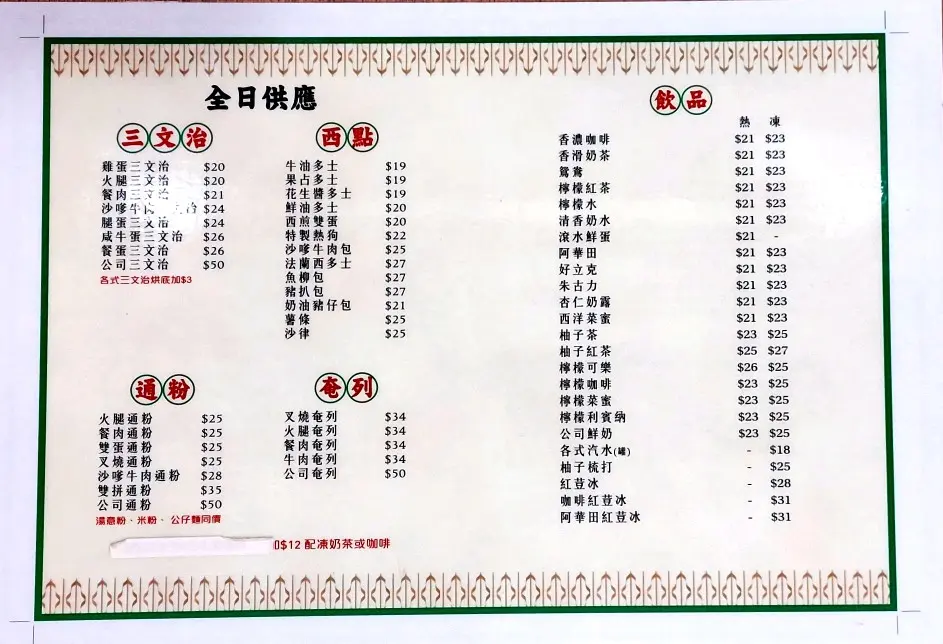 全日供應
三文治
雞蛋三文治 $20
火腿三文治 $20
餐肉三文治 $21
沙嗲牛肉 治 $24
腿蛋三文治 $24
咸牛蛋三文治 $26
餐蛋三文治 $26
公司三文治 $50
各式三文治烘底加$3
西點
牛油多士 $19
果占多士 $19
花生醬多士 $19
鮮油多士 $20
西煎雙蛋 $20
特製熱狗 $22
沙嗲牛肉包 $25
法蘭西多士 $27
魚柳包 $27
豬扒包 $27
奶油豬仔包 $21
薯條 $25
沙律 $25
通粉
火腿通粉 $25
餐肉通粉 $25
雙蛋通粉 $25
叉燒通粉 $25
沙嗲牛肉通粉 $28
雙拼通粉 $35
公司通粉 $50
湯意粉、米粉、公仔麵同價
奄列
叉燒奄列 $34
火腿奄列 $34
餐肉奄列 $34
牛肉奄列 $34
公司奄列 $50
$12 配凍奶茶或咖啡
飲品
熱 凍
香濃咖啡 $21 $23
香滑奶茶 $21 $23
鴛鴦 $21 $23
檸檬紅茶 $21 $23
檸檬水 $21 $23
清香奶水 $21 $23
滾水鮮蛋 $21 -
阿華田 $21 $23
好立克 $21 $23
朱古力 $21 $23
杏仁奶露 $21 $23
西洋菜蜜 $21 $23
柚子茶 $23 $25
柚子紅茶 $25 $27
檸檬可樂 $26 $25
檸檬咖啡 $23 $25
檸檬菜蜜 $23 $25
檸檬利賓納 $23 $25
公司鮮奶 $23 $25
各式汽水(罐) - $18
柚子梳打 - $25
紅荳冰 - $28
咖啡紅荳冰 - $31
阿華田紅荳冰 - $31